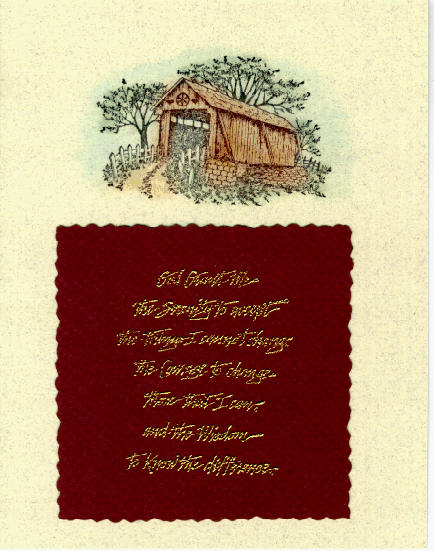 God Grant Me
the Serenity to accept
the things I cannot change
the Courage to change
those that I can,
and the Wisdom
to Know the difference.